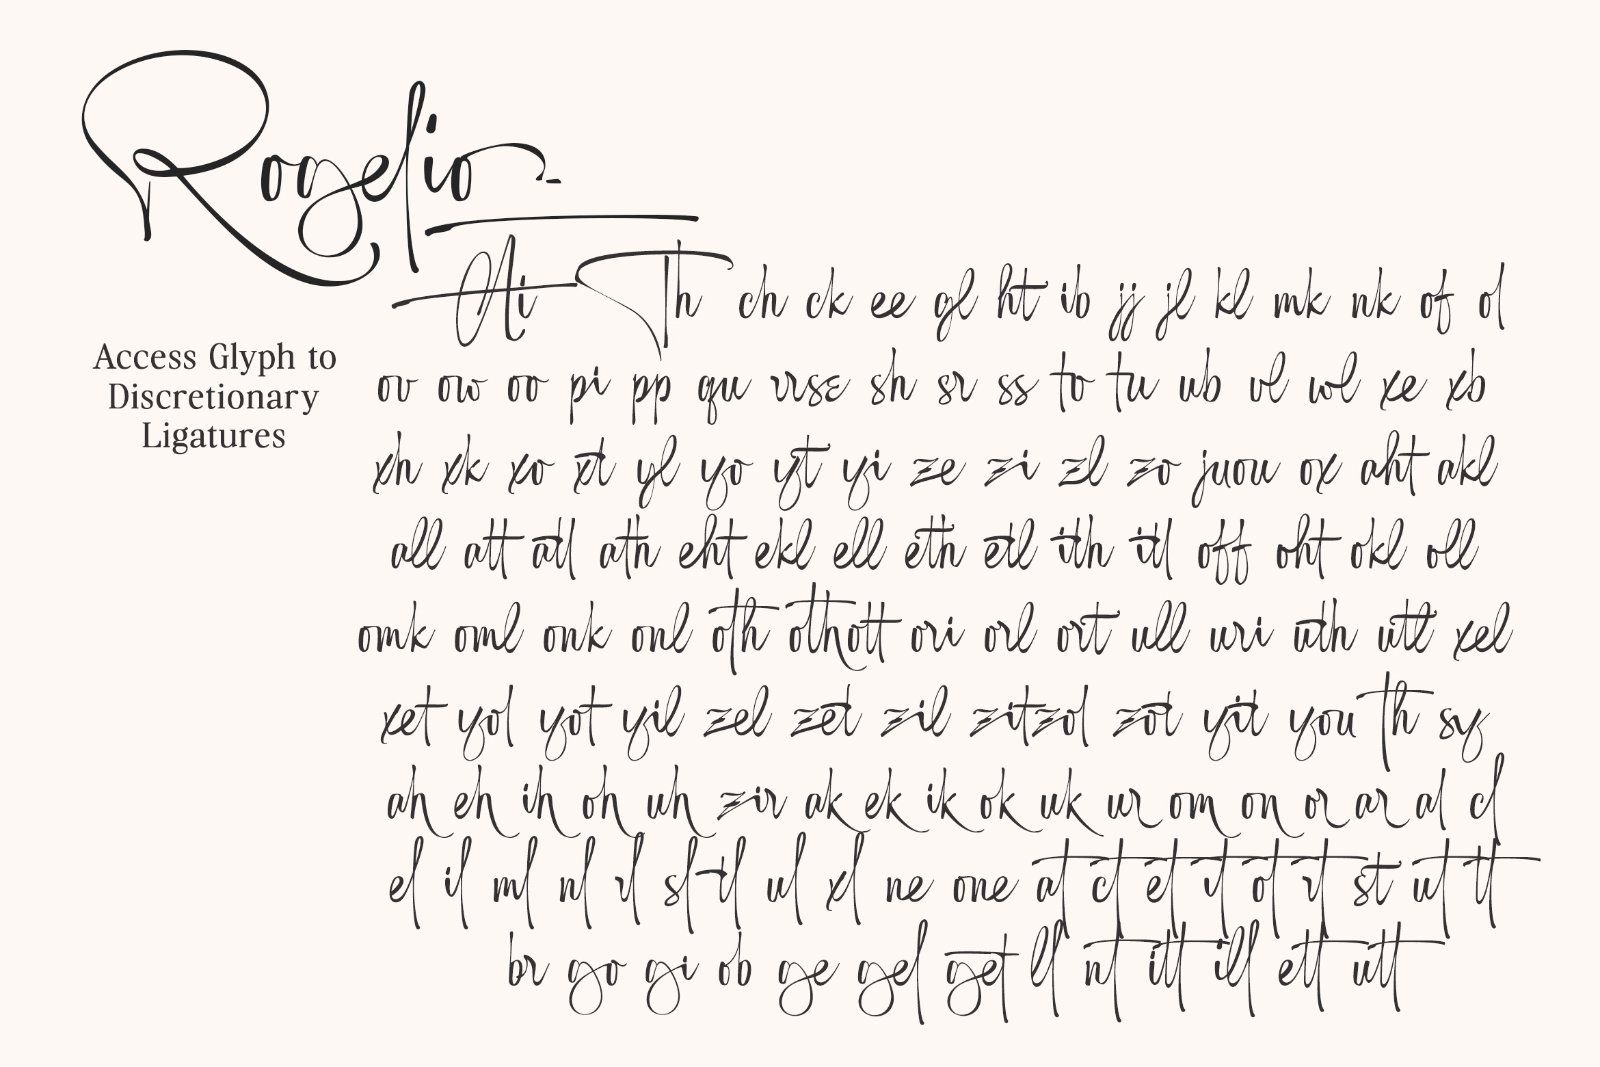 Rogelio
Ai Th ch ck ee gl ht ib jj jl kl mk nk of ol
Access Glyph to
Discretionary
Ligatures
ov ow oo pi pp qu rrse sh sr ss to tu ub vl wl xe xb
xh xk xo xt yl yo yt yi ze zi zl zo juou ox aht akl
all att atl ath eht ekl ell eth etl ith itl off oht okl oll
omk oml onk onl oth othott ori orl ort ull uri uth utl xel
xet yol yot yil zel zet zil zitzol zot yit you th sy
ah eh ih oh uh zir ak ek ik ok uk ur om on or ar al cl
el il ml nl rl sl tl ul xl ne one at ct et it ot rt st ut tt
br go gi ob ge gel get ll nt itt ill ett utt